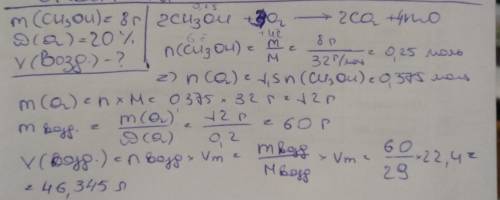 m(CH₃OH)=8г
D(O₂)=20%
V(Возд.)-?
0,25
2CH₃OH + 3O₂ → 2CO₂ + 4H₂O
n(CH₃OH) = m/M = 8г/32г/моль = 0,25 моль
=> n(O₂) = 1,5n(CH₃OH) = 0,375 моль
m(O₂) = n × M = 0,375 × 32 г = 12 г
m возд. = m(O₂)/D(O₂) = 12 г/0,2 = 60 г
V(возд.) = n возд × Vm = m возд/M возд × Vm = 60/29 × 22,4 =
= 46,345 л